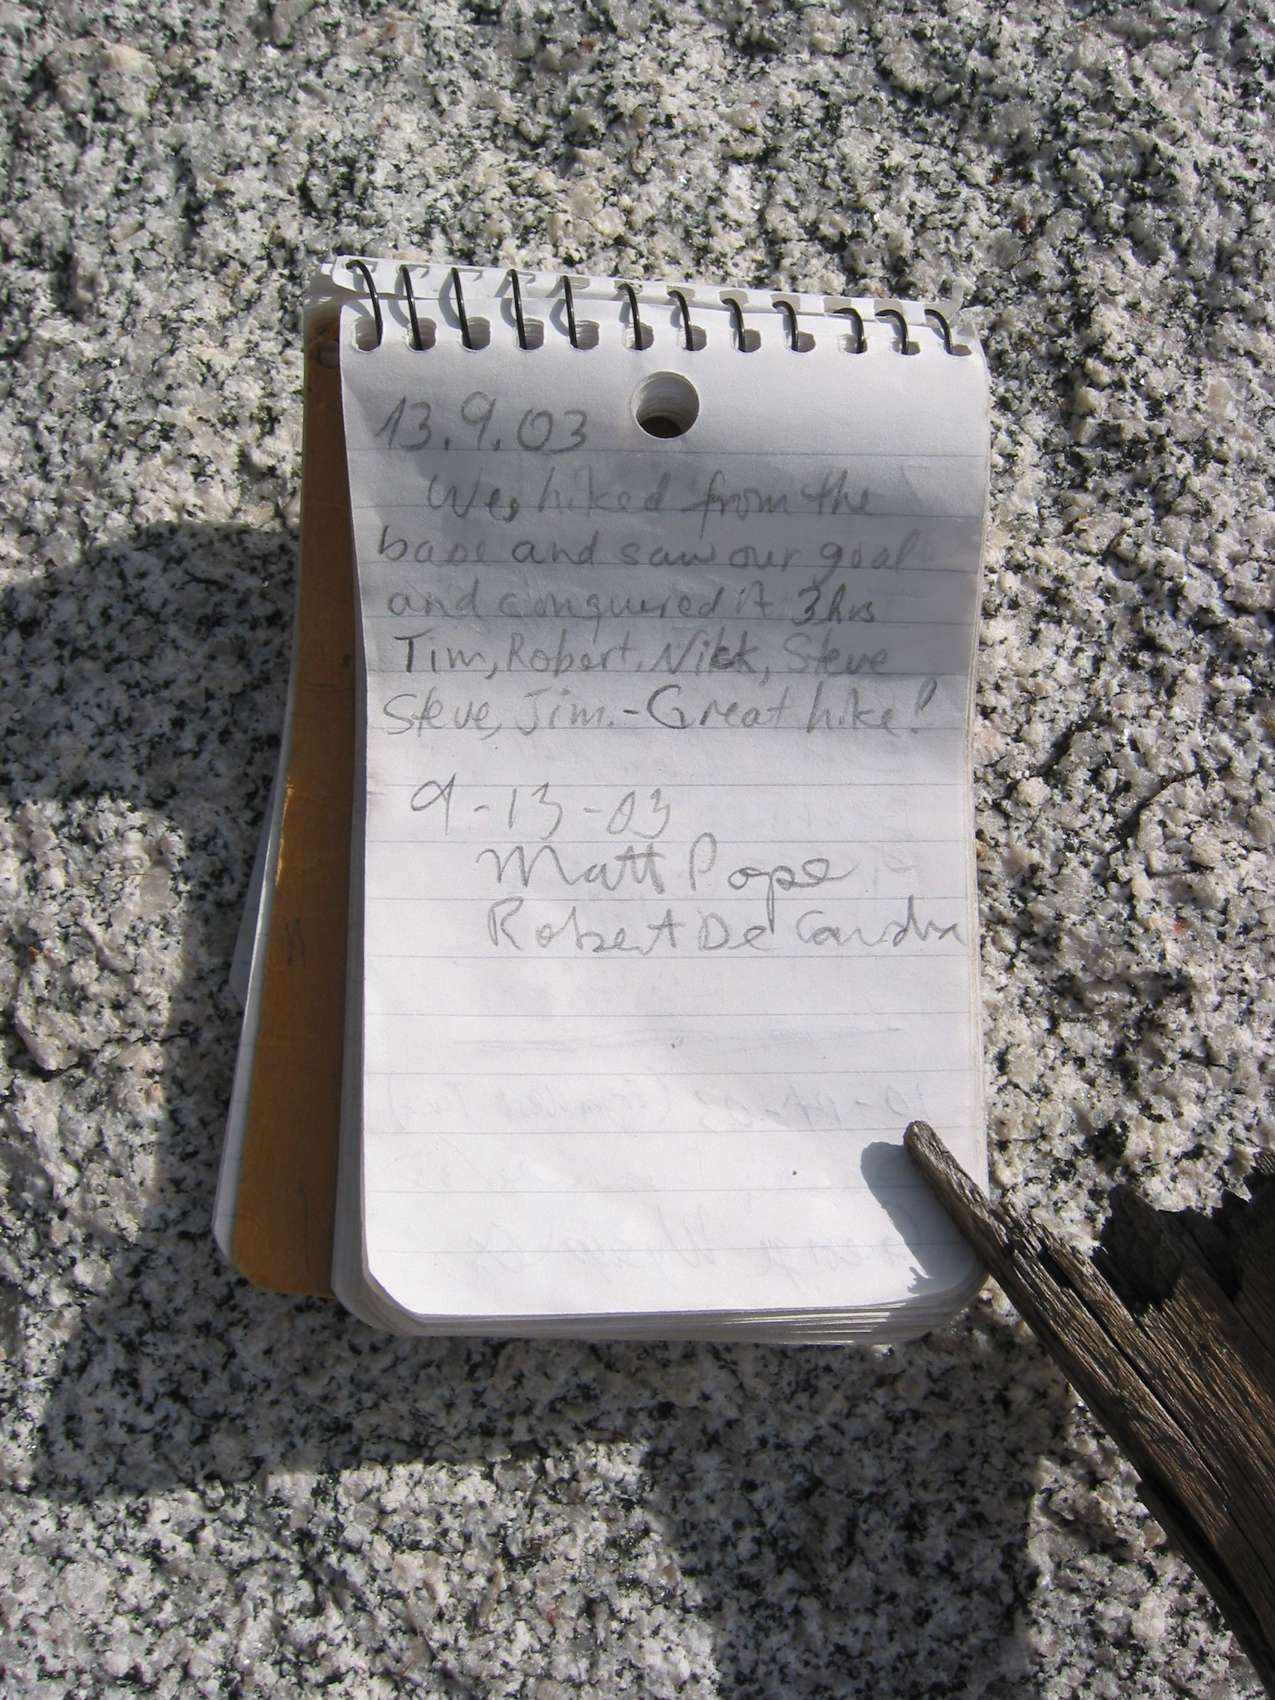 13.9.03
We hiked from the
base and saw our goal
and conquered it 3hrs
Tim, Robert, Nick, Steve
Steve, Jim. - Great hike!
9-13-03
Matt Pope
Robert De